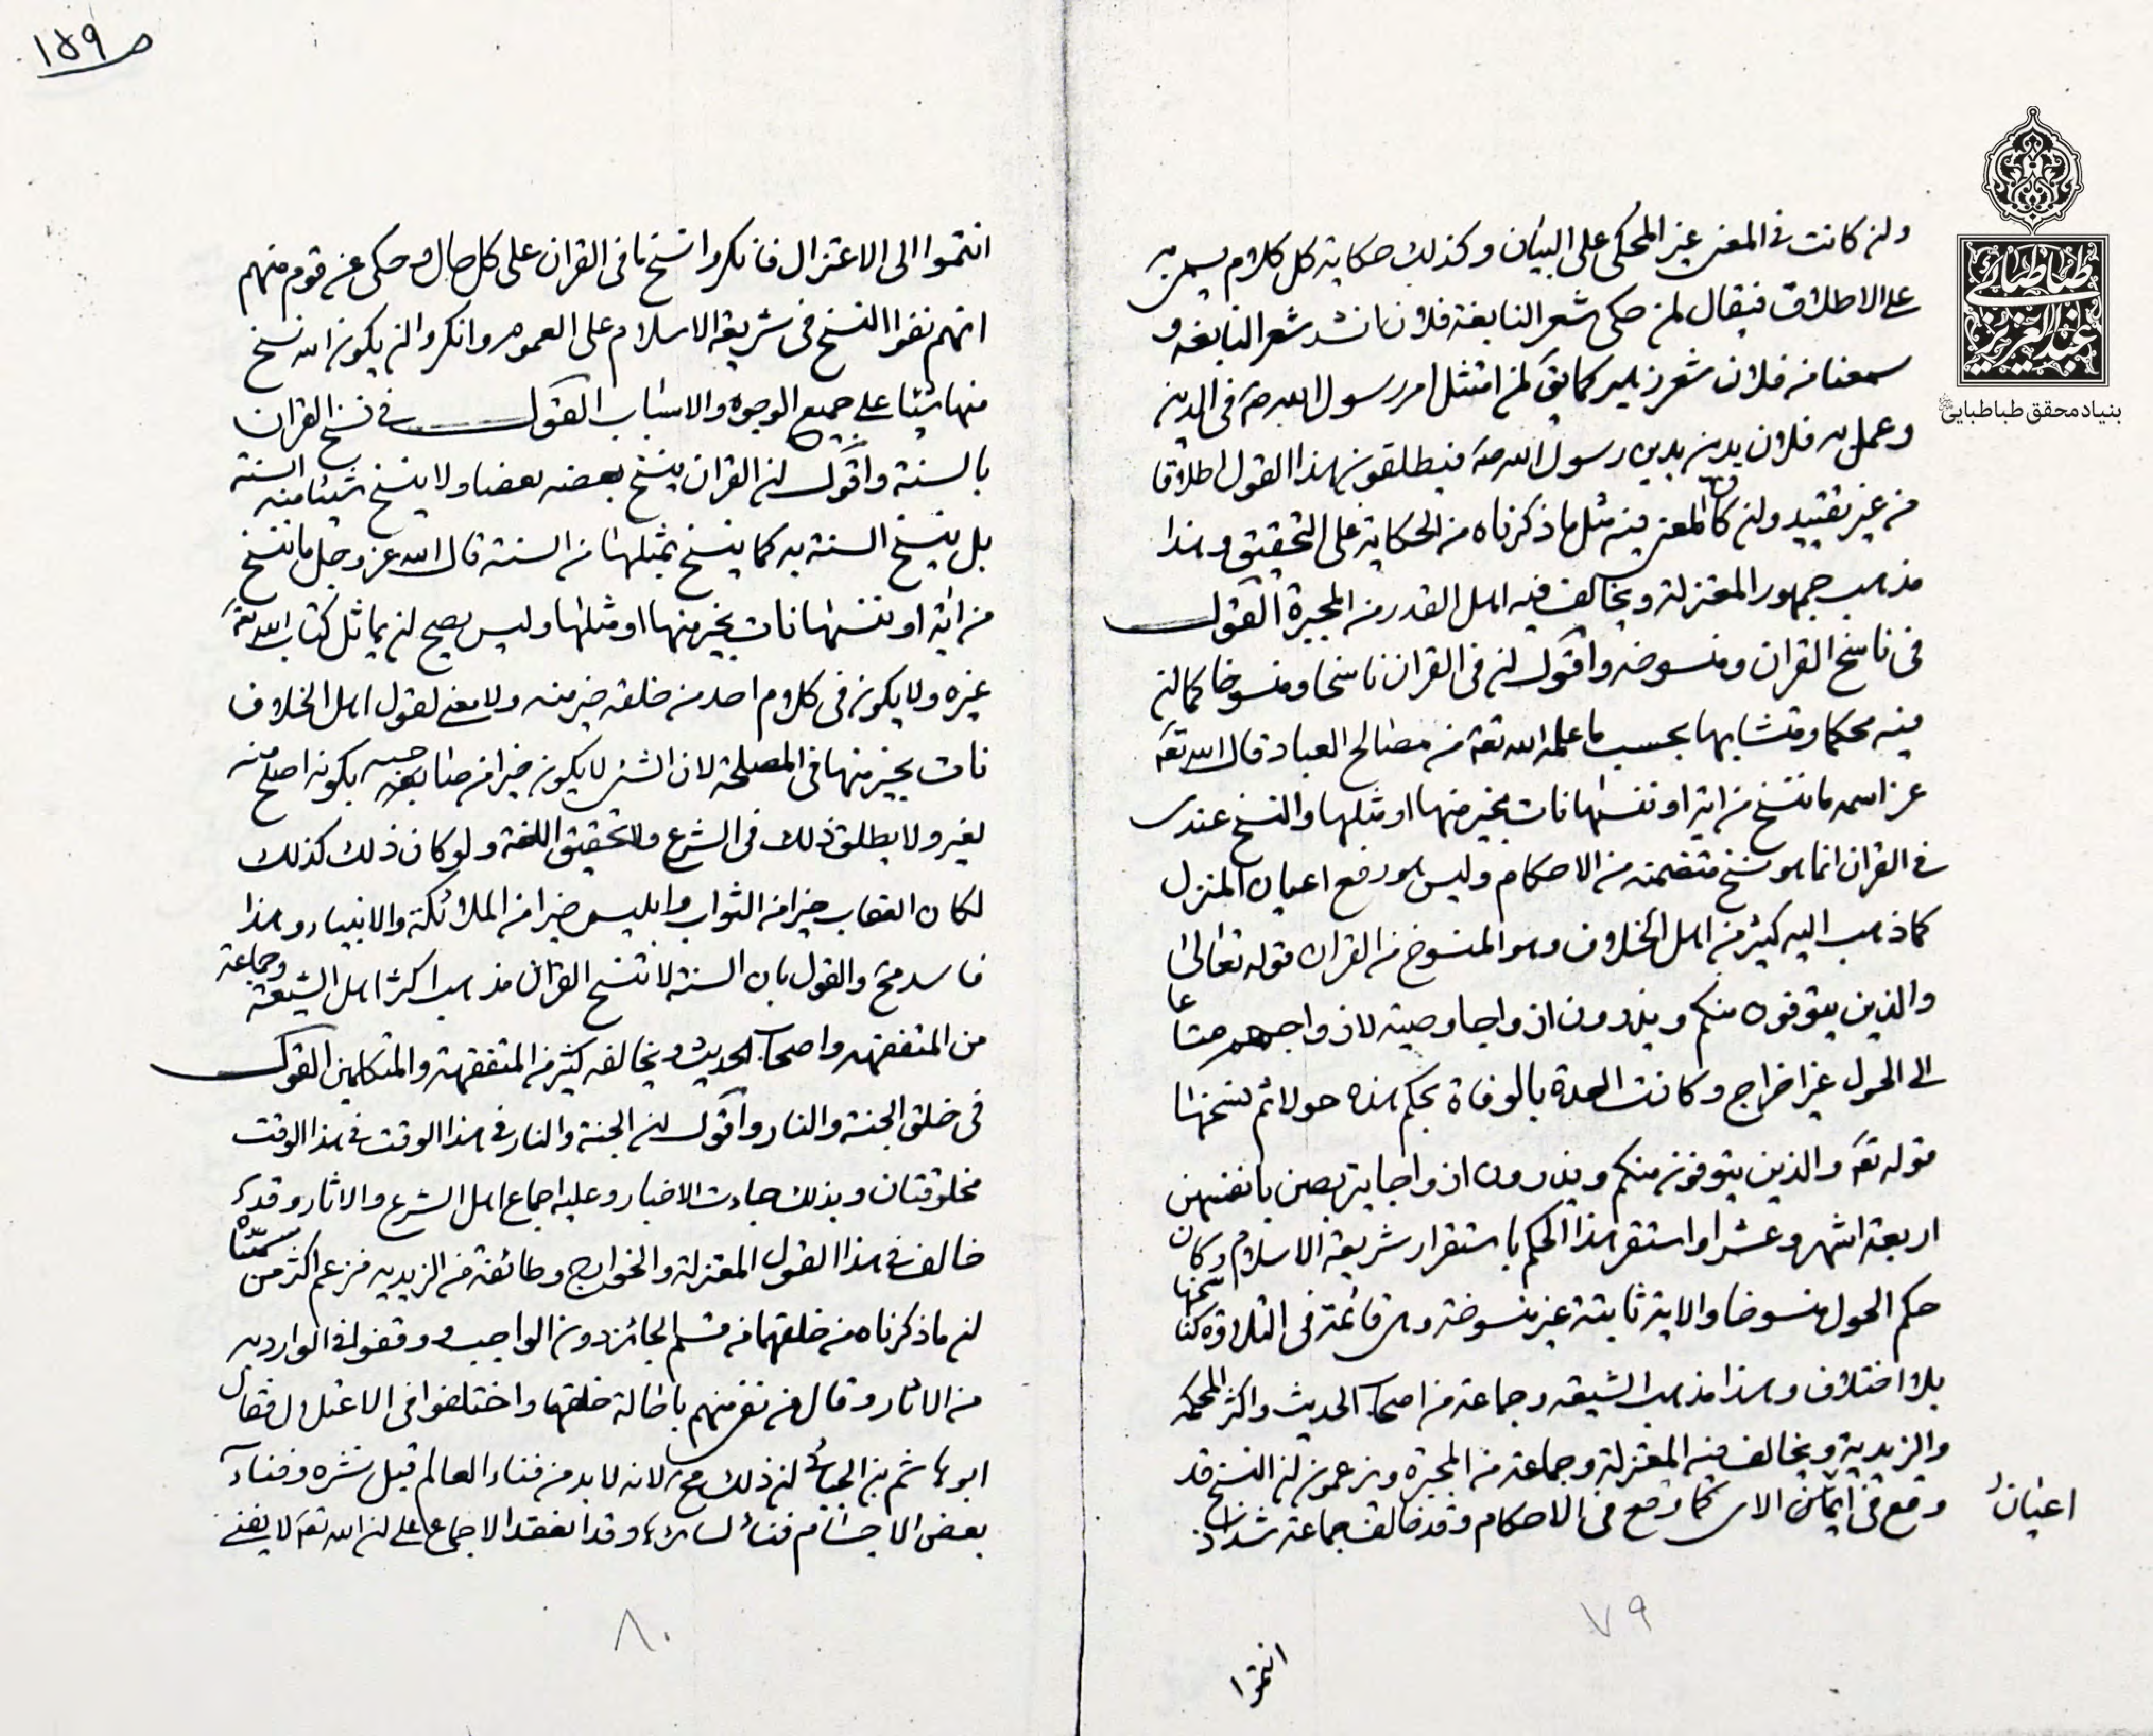 وان كانت في المعنى غير المحكى على البيان وكذلك حكاية كل كلام يسمى به
على الاطلاق فيقال لمن حكى شعر النابغة فلان انشد شعر النابغه و
سمعنا من فلان شعر زهير كما يق لمن امتثل امر رسول الله صه فى الدين
وعمل به فلان يدين بدين رسول الله صه فيطلقون هذا القول اطلاقا
من غير تقييد وان كان المعنى فيه مثل ما ذكرناه من الحكاية على التحقيق وهذا
مذهب جمهور المعتزلة ويخالف فيه اهل القدر من المجبرة القول
فى ناسخ القران ومنسوخه واقول ان فى القران ناسخا ومنسوخا كما ان
فيه محكما ومتشابها بحسب ما علمه الله تعه من مصالح العباد قال الله تعه
عز اسمه ما ننسخ من اية او ننسها نات بخير منها او مثلها والنسخ عندى
فى القران انما هو نسخ متضمنه من الاحكام وليس هو رفع اعيان المنزل
كما ذهب اليه كثير من اهل الخلاف وهو المنسوخ من القران قوله تعالى
والذين يتوفون منكم ويذرون ازواجا وصية لازواجهم متاعا
الى الحول غير اخراج وكانت العدة بالوفاة بحكم هذه حولا ثم نسخها
قوله تعه والذين يتوفون منكم ويذرون ازواجا يتربصن بانفسهن
اربعة اشهر وعشرا واستقر هذا الحكم باستقرار شريعة الاسلام وكان
حكم الحول منسوخا والاية ثابتة غير منسوخة وهى قائمة فى التلاوة كناسخها
بلا اختلاف وهذا مذهب الشيعه وجماعة من اصحاب الحديث واكثر المحكمه
والزيدية ويخالف فيه المعتزلة وجماعة من المجبرة ويزعمون ان النسخ قد
وقع فى اعيان الاى كما وقع فى الاحكام وقد خالف جماعة شذاذ
اعيان
٧٩
انتموا
ص ١٥٩
انتموا الى الاعتزال فانكروا نسخ ما فى القران على كل حال وحكى عن قوم منهم
انهم نفوا النسخ فى شريعة الاسلام على العموم وانكروا ان يكون الله نسخ
منها شيئا على جميع الوجوه والاسباب القول فى نسخ القران
بالسنة واقول ان القران ينسخ بعضه بعضا ولا ينسخ شيئا منه السنة
بل ينسخ السنة به كما ينسخ بمثلها من السنة قال الله عز وجل ما ننسخ
من اية او ننسها نات بخير منها او مثلها وليس يصح ان يماثل كتاب الله تعه
غيره ولا يكون فى كلام احد من خلقه خير منه ولا معنى لقول اهل الخلاف
نات بخير منها فى المصلحة لان الشىء لا يكون خيرا من صاحبه بكونه اصلح منه
لغيره ولا يطلق ذلك فى الشرع ولا تحقيق اللغة ولو كان ذلك كذلك
لكان العقاب خيرا من الثواب وابليس خيرا من الملائكة والانبياء وهذا
فاسد مح والقول بان السنة لا تنسخ القران مذهب اكثر اهل الشيعة وجماعة
من المتفقهه واصحاب الحديث ويخالفه كثير من المتفقهة والمتكلمين القول
فى خلق الجنة والنار واقول ان الجنة والنار فى هذا الوقت فى هذا الوقت
مخلوقتان وبذلك جاءت الاخبار وعليه اجماع اهل الشرع والاثار وقد
خالف فى هذا القول المعتزلة والخوارج وطائفة من الزيديه فزعم اكثر من سميناه
ان ما ذكرناه من خلقهما من قسم الجائز دون الواجب ووقفوا فى الوارد به
من الاثار وقال من نفى منهم باحالة خلقهما واختلفوا فى الاعتلال فقال
ابو هاشم بن الجبائى ان ذلك مح لانه لا بد من فناء العالم قبل نشره وفناء
بعض الاجسام فناء لسائرها وقد انعقد الاجماع على ان الله تعه لا يفنى
٨٠
طباطبائی
عبدالعزیز
بنیاد محقق طباطبایی